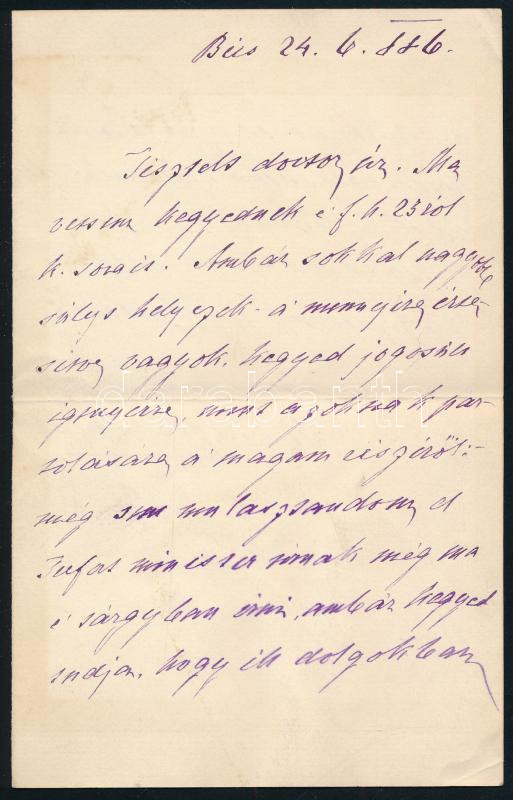 Bécs 24. 6. 886.
Tisztelt doctor úr. Ma
vettem kegyednek é f. h. 23ról
k. sorait. Ambár sokkal nagyobb
súlyt helyezek - a mennyire érte-
sitve vagyok, kegyed jogosúlt
igényeire, mint azoknak pár-
tolására a magam részéről:-
még sem mulasztandom el
Trefort minister úrnak még ma
é tárgyban irni, ambár kegyed
tudja, hogy ily dolgokban
darabanth